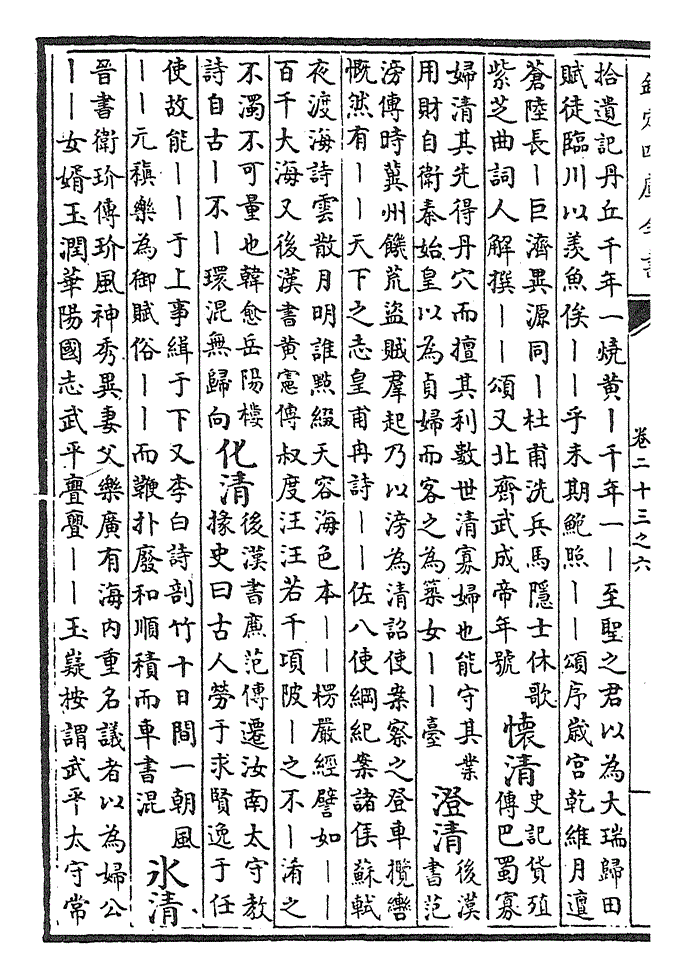 欽定四庫全書
卷二十三之六
拾遺記丹丘千年一燒黄丨千年一丨至聖之君以為大瑞歸田
賦徒臨川以羨魚俟丨丨乎未期鮑照丨丨頌序嵗宫乾維月邅
蒼陸長丨巨濟異源同丨杜甫洗兵馬隱士休歌
紫芝曲詞人解撰丨丨頌又北齊武成帝年號
懷清
史記貨殖
傳巴蜀寡
婦清其先得丹穴而擅其利數世清寡婦也能守其業
用財自衛秦始皇以為貞婦而客之為築女丨丨臺
澄清
後漢
書范
滂傳時冀州饑荒盜賊羣起乃以滂為清詔使案察之登車攬轡
慨然有丨丨天下之志皇甫冉詩丨丨佐八使綱紀案諸侯蘇軾
夜渡海詩雲散月明誰點綴天容海色本丨丨楞嚴經譬如丨丨
百千大海又後漢書黄憲傳叔度汪汪若千項陂丨之不丨淆之
不濁不可量也韓愈岳陽樓
詩自古丨不丨環混無歸向
化清
後漢書廉范傳遷汝南太守教
掾史曰古人勞于求賢逸于任
使故能丨丨于上事緝于下又李白詩剖竹十日間一朝風
丨丨元稹樂為御賦俗丨丨而鞭扑廢和順積而車書混
氷清
晉書衛玠傳玠風神秀異妻父樂廣有海内重名議者以為婦公
丨丨女婿玉潤華陽國志武平亹亹丨丨玉嶷按謂武平太守常